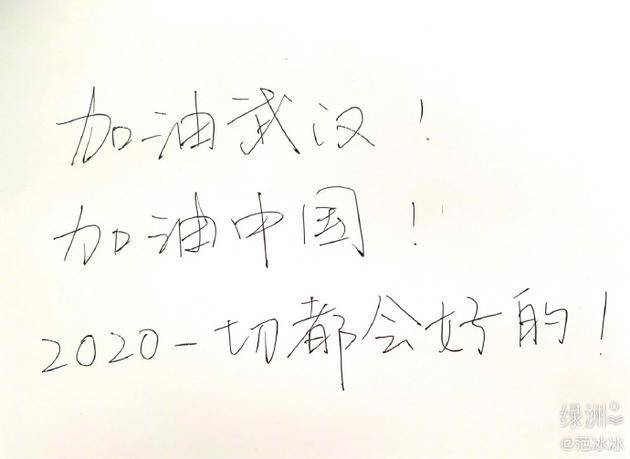 加油武汉！
加油中国！
2020一切都会好的！
绿洲
@范冰冰